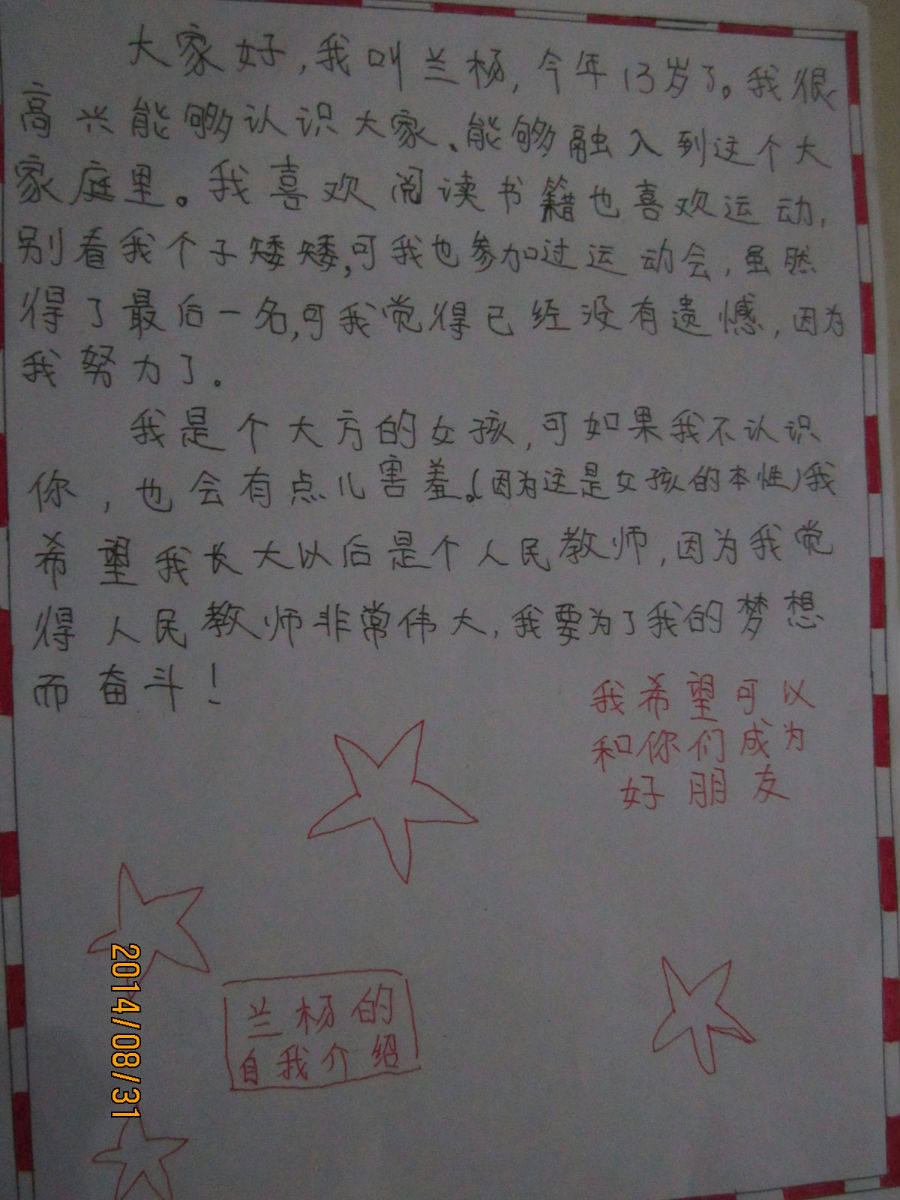 大家好,我叫兰杨,今年13岁了。我很
高兴能够认识大家、能够融入到这个大
家庭里。我喜欢阅读书籍也喜欢运动,
别看我个子矮矮,可我也参加过运动会,虽然
得了最后一名,可我觉得已经没有遗憾,因为
我努力了。
我是个大方的女孩,可如果我不认识
你,也会有点儿害羞。(因为这是女孩的本性)我
希望我长大以后是个人民教师,因为我觉
得人民教师非常伟大,我要为了我的梦想
而奋斗!
我希望可以
和你们成为
好朋友
兰杨的
自我介绍
2014/08/31